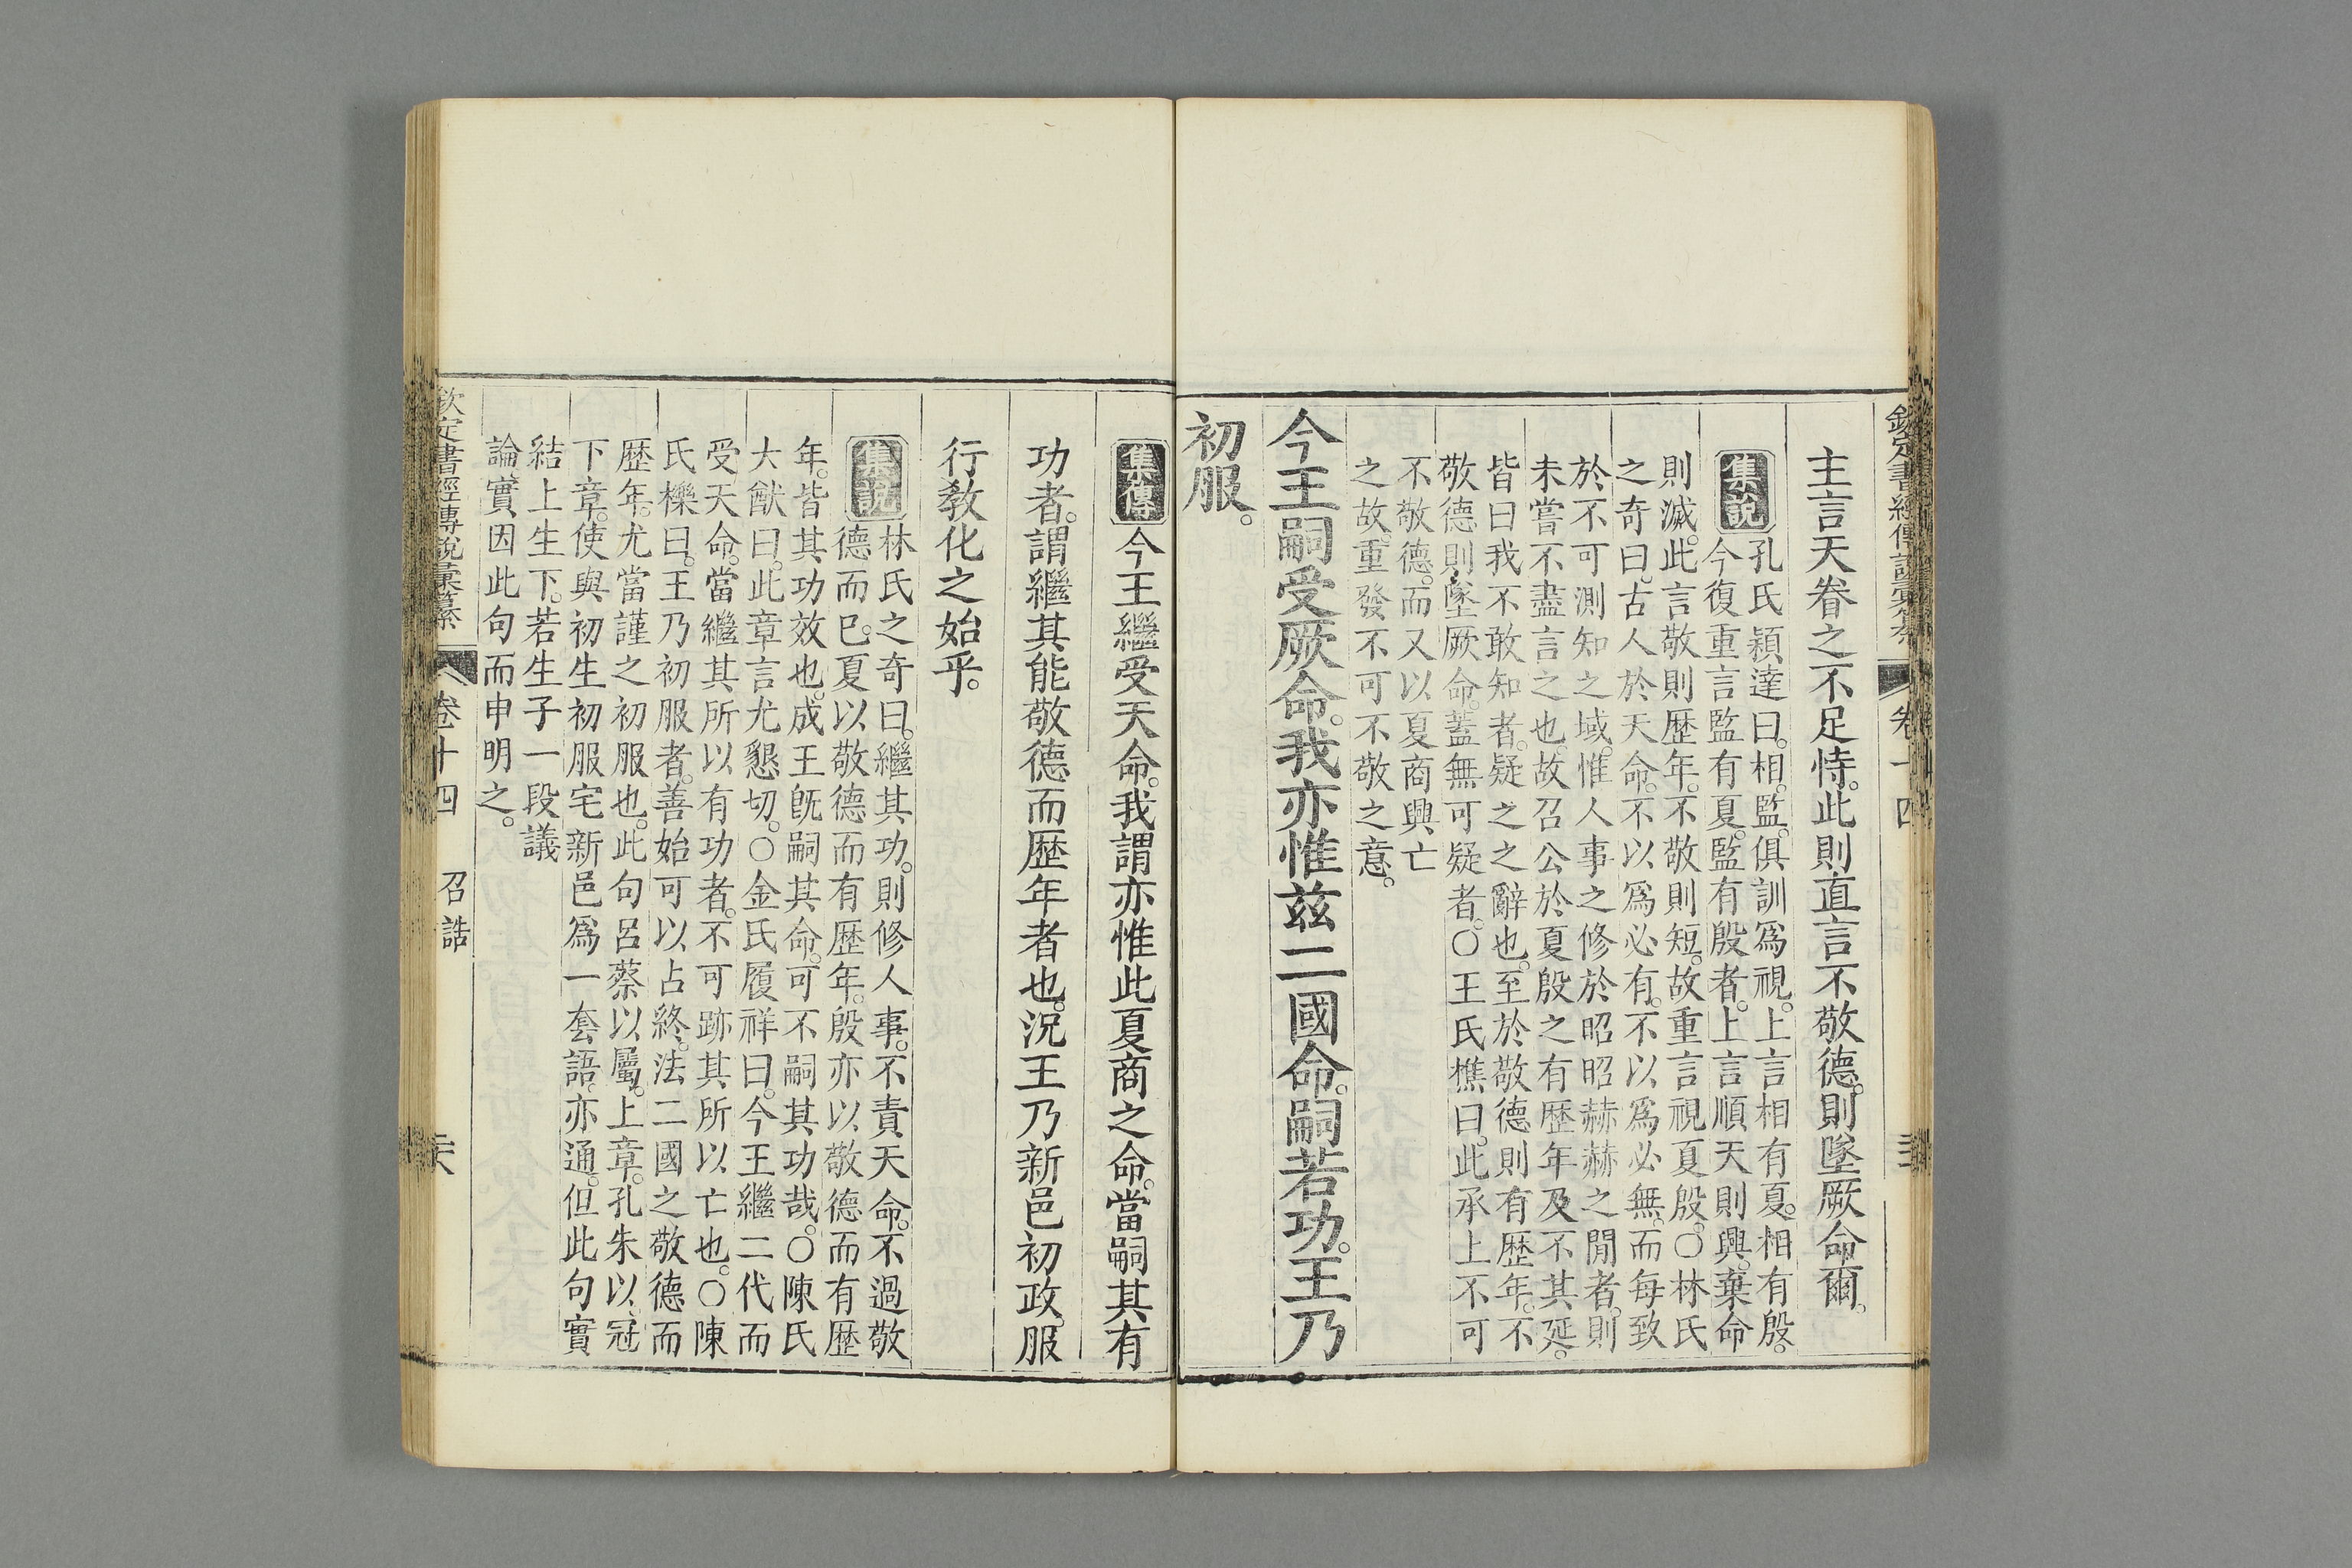 主言天眷之不足恃。此則直言不敬德。則墜厥命爾。
集說
孔氏穎達曰。相。監。俱訓爲視。上言相有夏。相有殷。
今復重言監有夏。監有殷者。上言順天則興。棄命
則滅。此言敬則歷年。不敬則短。故重言視夏殷。○林氏
之奇曰。古人於天命。不以爲必有。不以爲必無。而每致
於不可測知之域。惟人事之修於昭昭赫赫之閒者。則
未嘗不盡言之也。故召公於夏殷之有歷年及不其延。
皆曰我不敢知者。疑之之辭也。至於敬德則有歷年。不
敬德則墜厥命。蓋無可疑者。○王氏樵曰。此承上不可
不敬德。而又以夏商興亡
之故。重發不可不敬之意。
今王嗣受厥命。我亦惟茲二國命。嗣若功。王乃
初服。
集傳
今王繼受天命。我謂亦惟此夏商之命。當嗣其有
功者。謂繼其能敬德而歷年者也。況王乃新邑初政。服
行敎化之始乎。
集說
林氏之奇曰。繼其功。則修人事。不責天命。不過敬
德而已。夏以敬德而有歷年。殷亦以敬德而有歷
年。皆其功效也。成王旣嗣其命。可不嗣其功哉。○陳氏
大猷曰。此章言尤懇切。○金氏履祥曰。今王繼二代而
受天命。當繼其所以有功者。不可跡其所以亡也。○陳
氏櫟曰。王乃初服者。善始可以占終。法二國之敬德而
歷年。尤當謹之初服也。此句呂蔡以屬上章。孔朱以冠
下章。使與初生初服宅新邑爲一套語。亦通。但此句實
結上生下。若生子一段議
論實因此句而申明之。
欽定書經傳說彙纂
卷十四
召誥